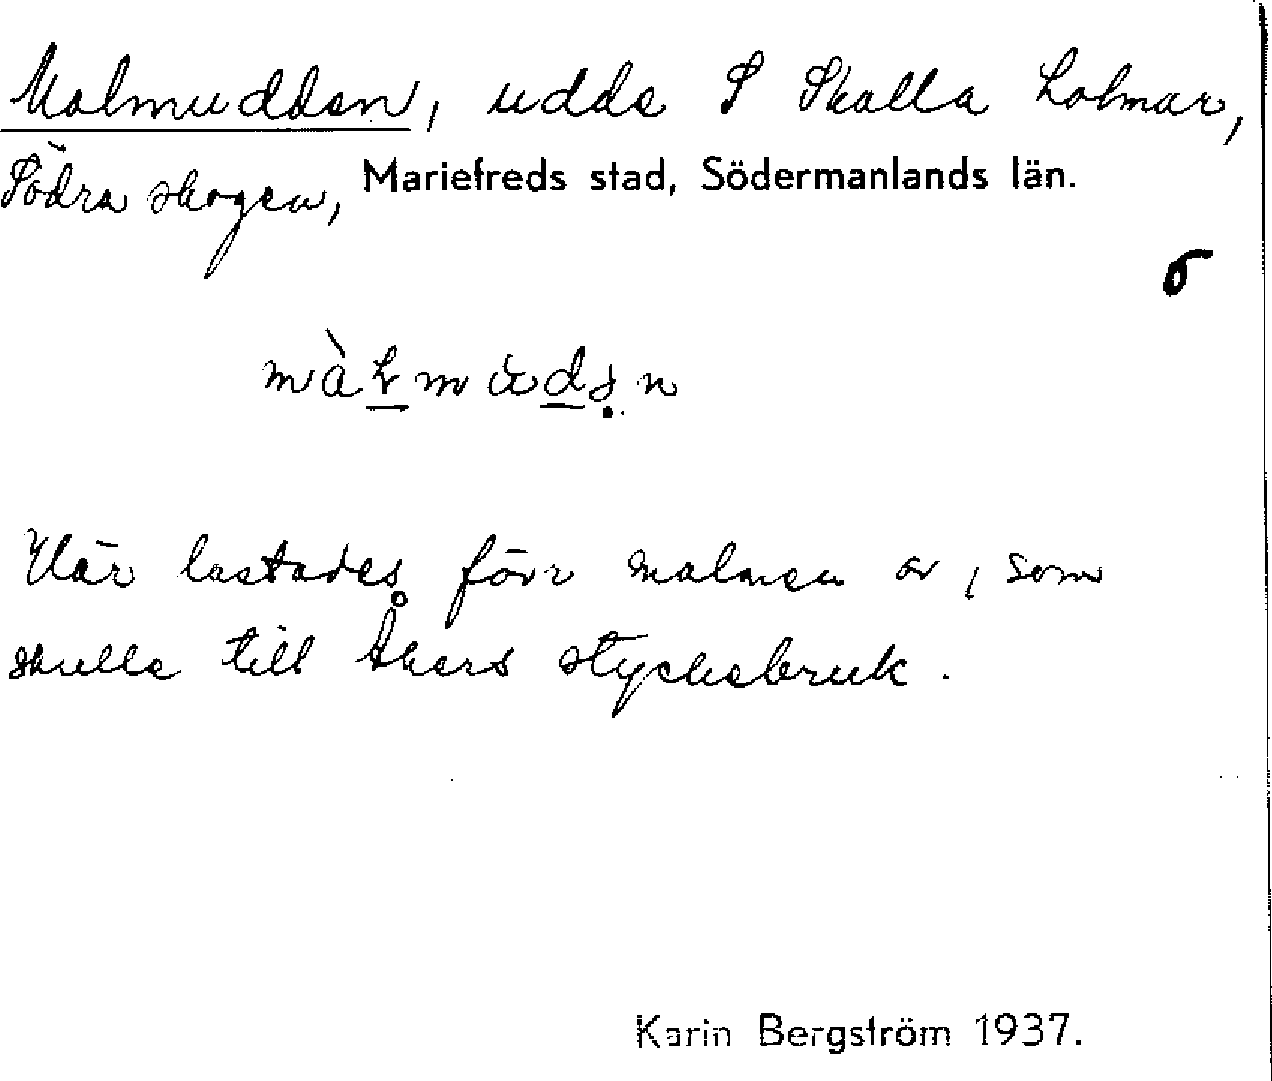 Malmudden, udde S Skalla holmar,
Södra skogen, Mariefreds stad, Södermanlands län.
σ
Här lastades förr malmen av, som
skulle till Åkers styckebruk.
Karin Bergström 1937.